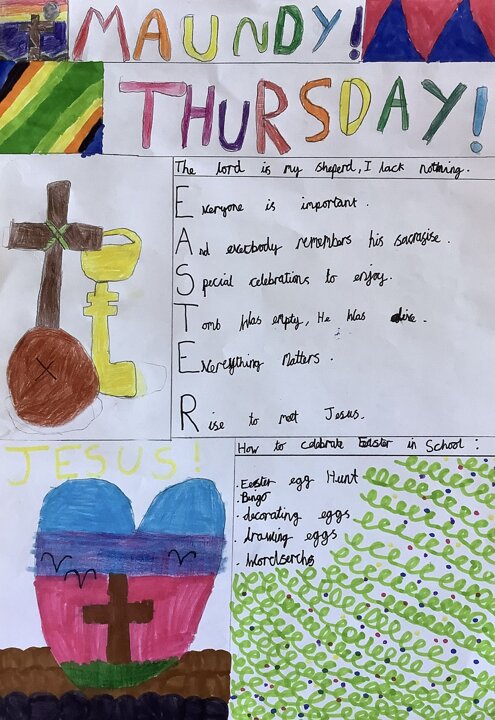 MAUNDY!
THURSDAY!
The lord is my sheperd, I lack nothing.
Everyone is important.
And everbody remembers his sacrasise.
Special celebrations to enjoy.
Tomb Was empty, He Was alive.
Everything Matters.
Rise to meet Jesus.
JESUS!
How to celabrate Easter in School:
· Easter egg Hunt
· Bingo
· decorating eggs
· drawing eggs
· Wordserchs